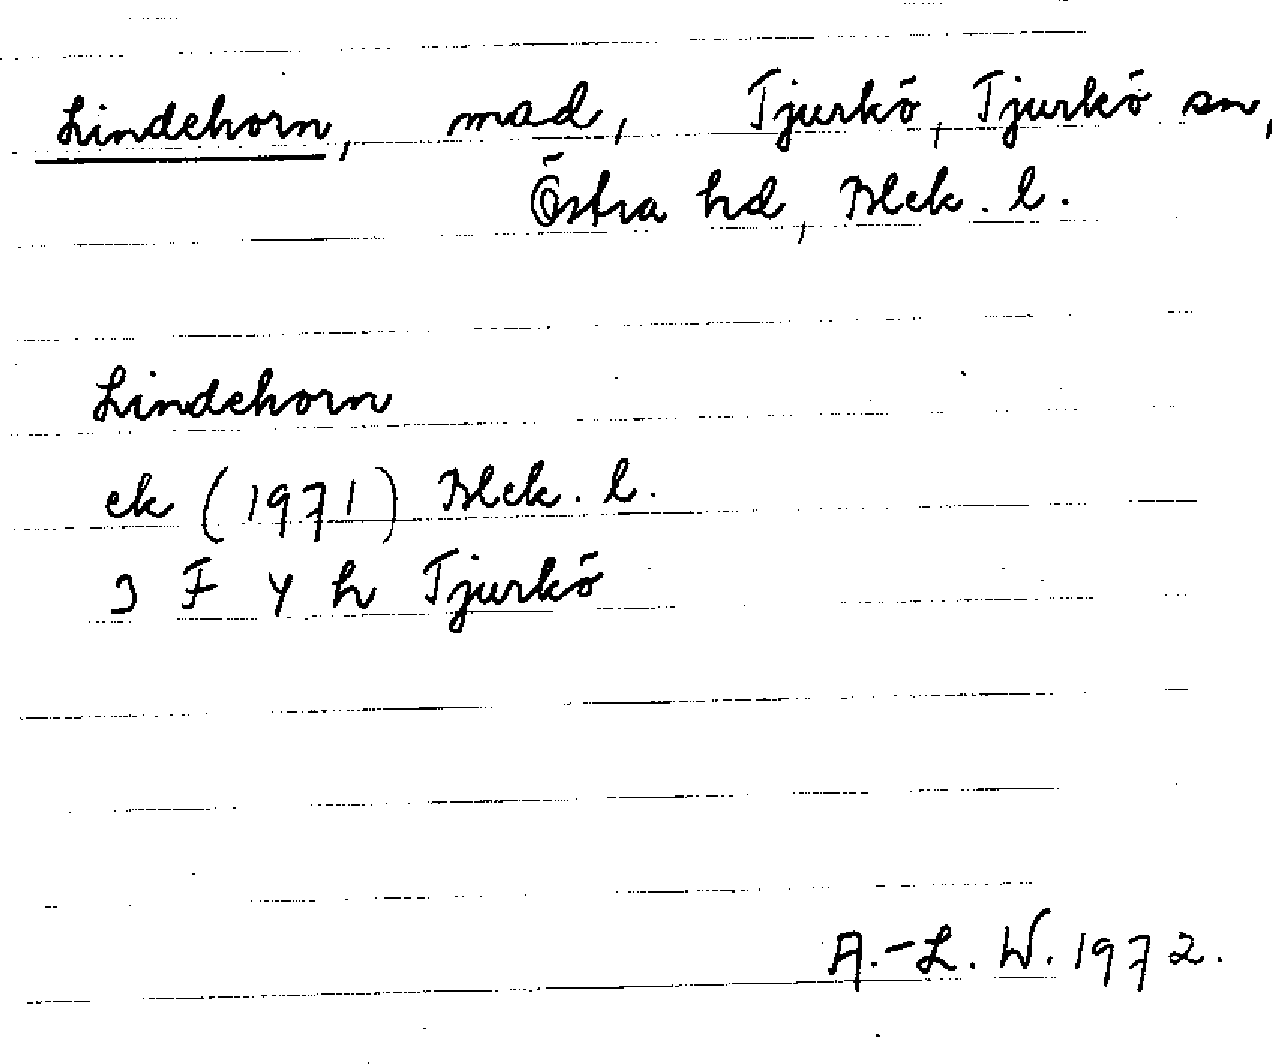 Lindehorn, mad, Tjurkö, Tjurkö sn,
Östra hd, Blek. l.
Lindehorn
ek (1971) Blek. l.
3 F 4 h Tjurkö
A.-L. W. 1972.